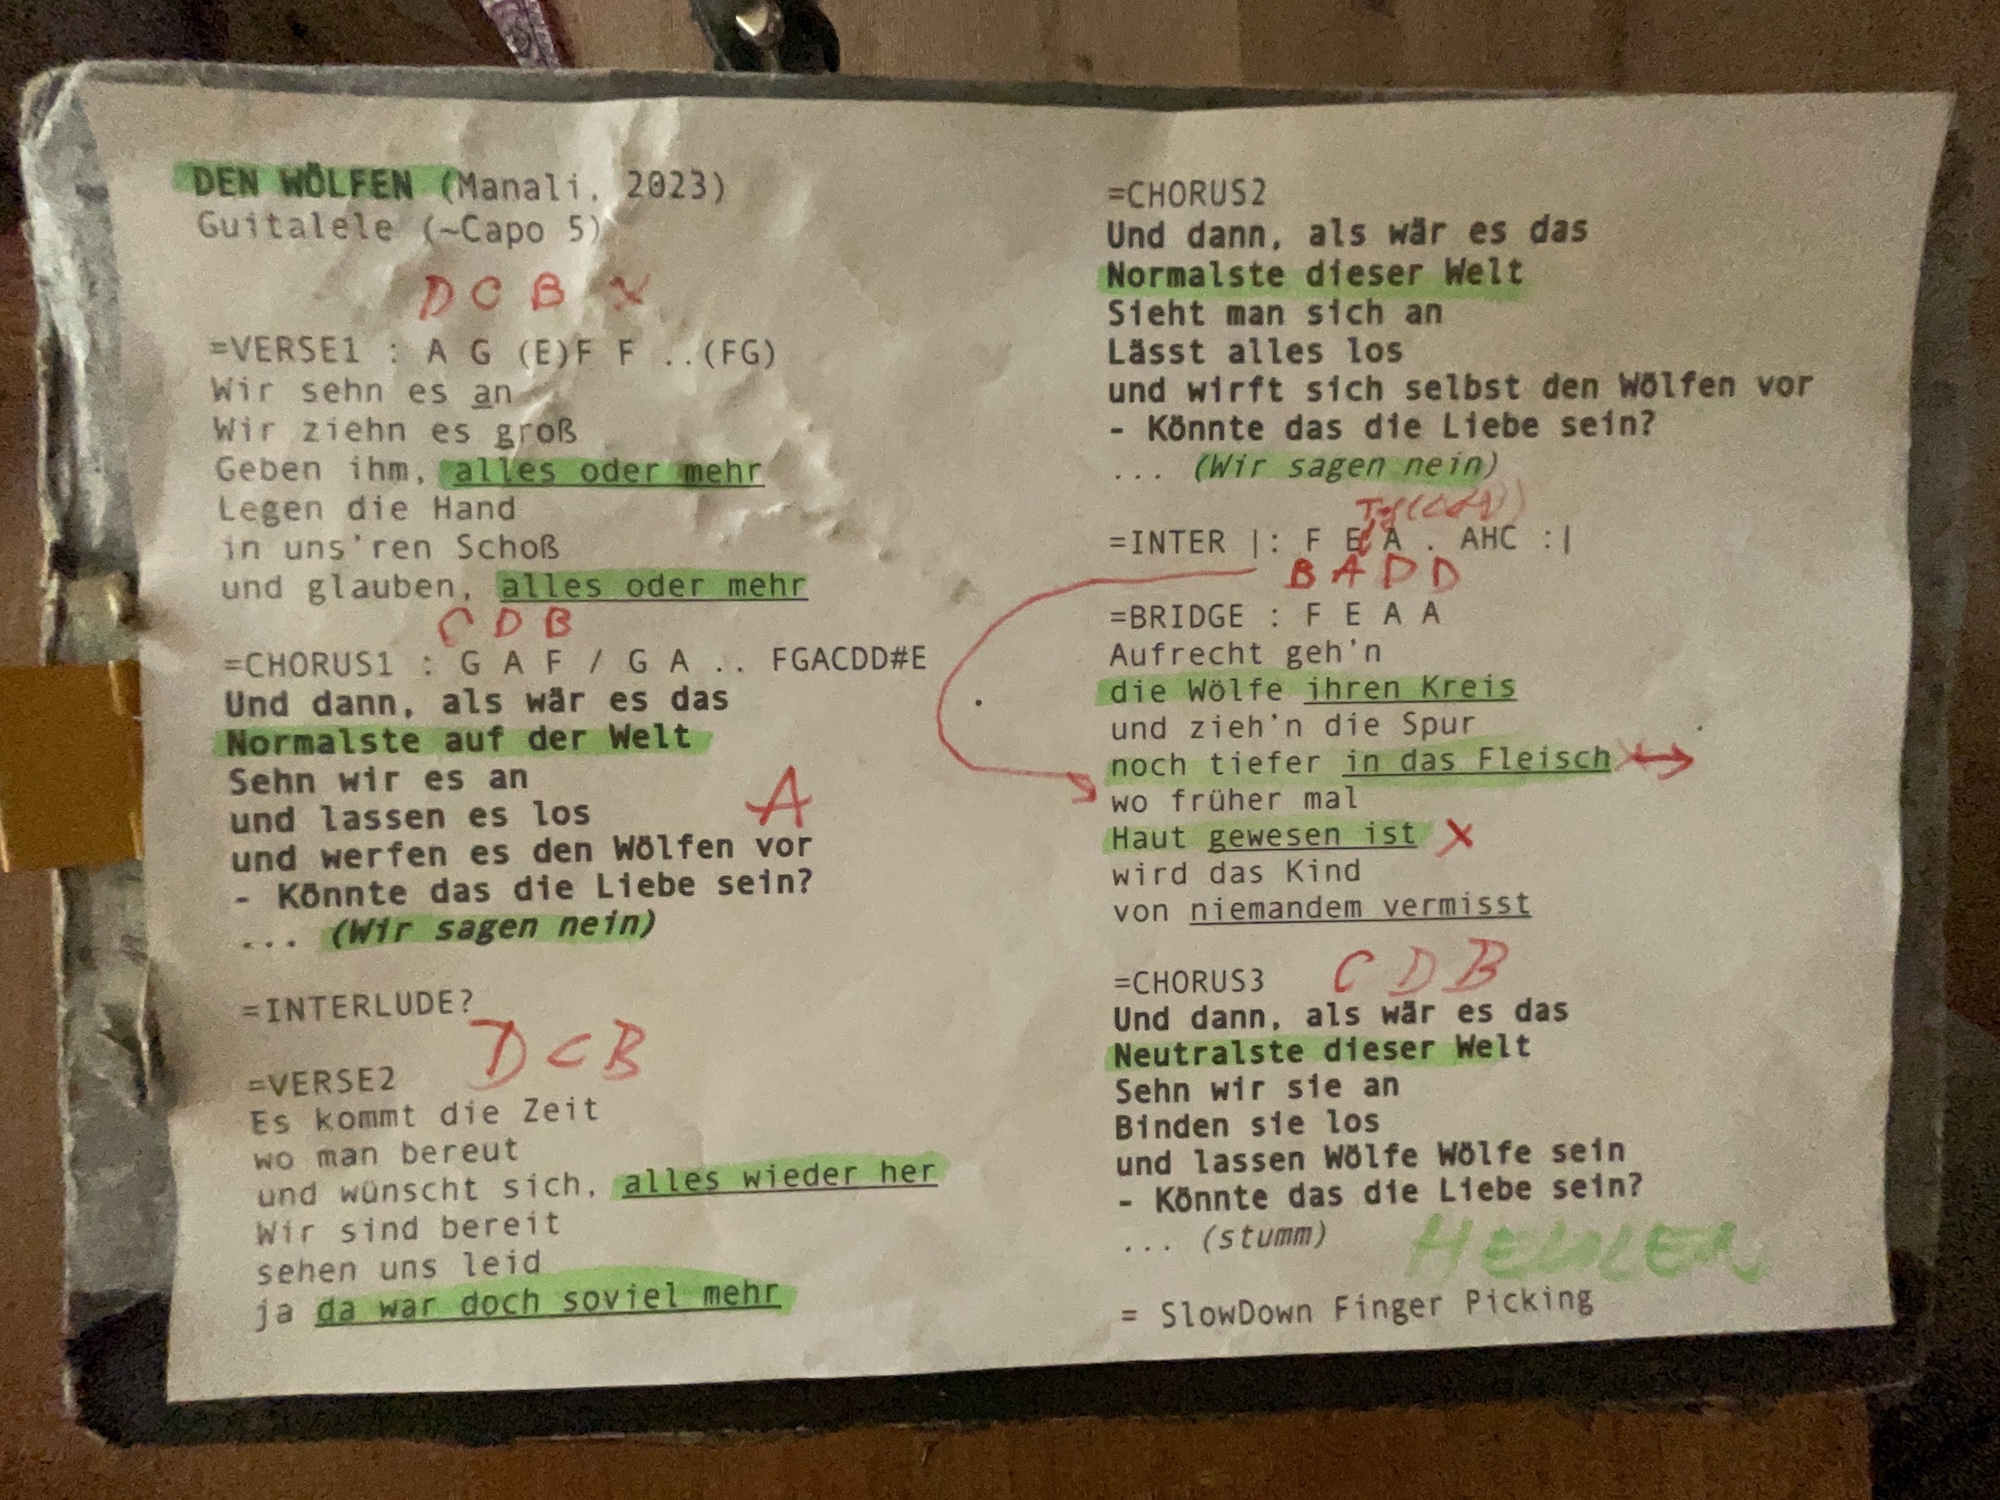 DEN WÖLFEN (Manali, 2023)
Guitalele (~Capo 5)
D C B X
=VERSE1 : A G (E)F F ..(FG)
Wir sehn es an
Wir ziehn es groß
Geben ihm, alles oder mehr
Legen die Hand
in uns'ren Schoß
und glauben, alles oder mehr
C D B
=CHORUS1 : G A F / G A .. FGACDD#E
Und dann, als wär es das
Normalste auf der Welt
Sehn wir es an
und lassen es los
A
und werfen es den Wölfen vor
- Könnte das die Liebe sein?
... (Wir sagen nein)
=INTERLUDE?
D C B
=VERSE2
Es kommt die Zeit
wo man bereut
und wünscht sich, alles wieder her
Wir sind bereit
sehen uns leid
ja da war doch soviel mehr
=CHORUS2
Und dann, als wär es das
Normalste dieser Welt
Sieht man sich an
Lässt alles los
und wirft sich selbst den Wölfen vor
- Könnte das die Liebe sein?
... (Wir sagen nein)
=INTER |: F E A . AHC :|
B A D D
=BRIDGE : F E A A
Aufrecht geh'n
die Wölfe ihren Kreis
und zieh'n die Spur
noch tiefer in das Fleisch
wo früher mal
Haut gewesen ist X
wird das Kind
von niemandem vermisst
=CHORUS3 C D B
Und dann, als wär es das
Neutralste dieser Welt
Sehn wir sie an
Binden sie los
und lassen Wölfe Wölfe sein
- Könnte das die Liebe sein?
... (stumm)
= SlowDown Finger Picking